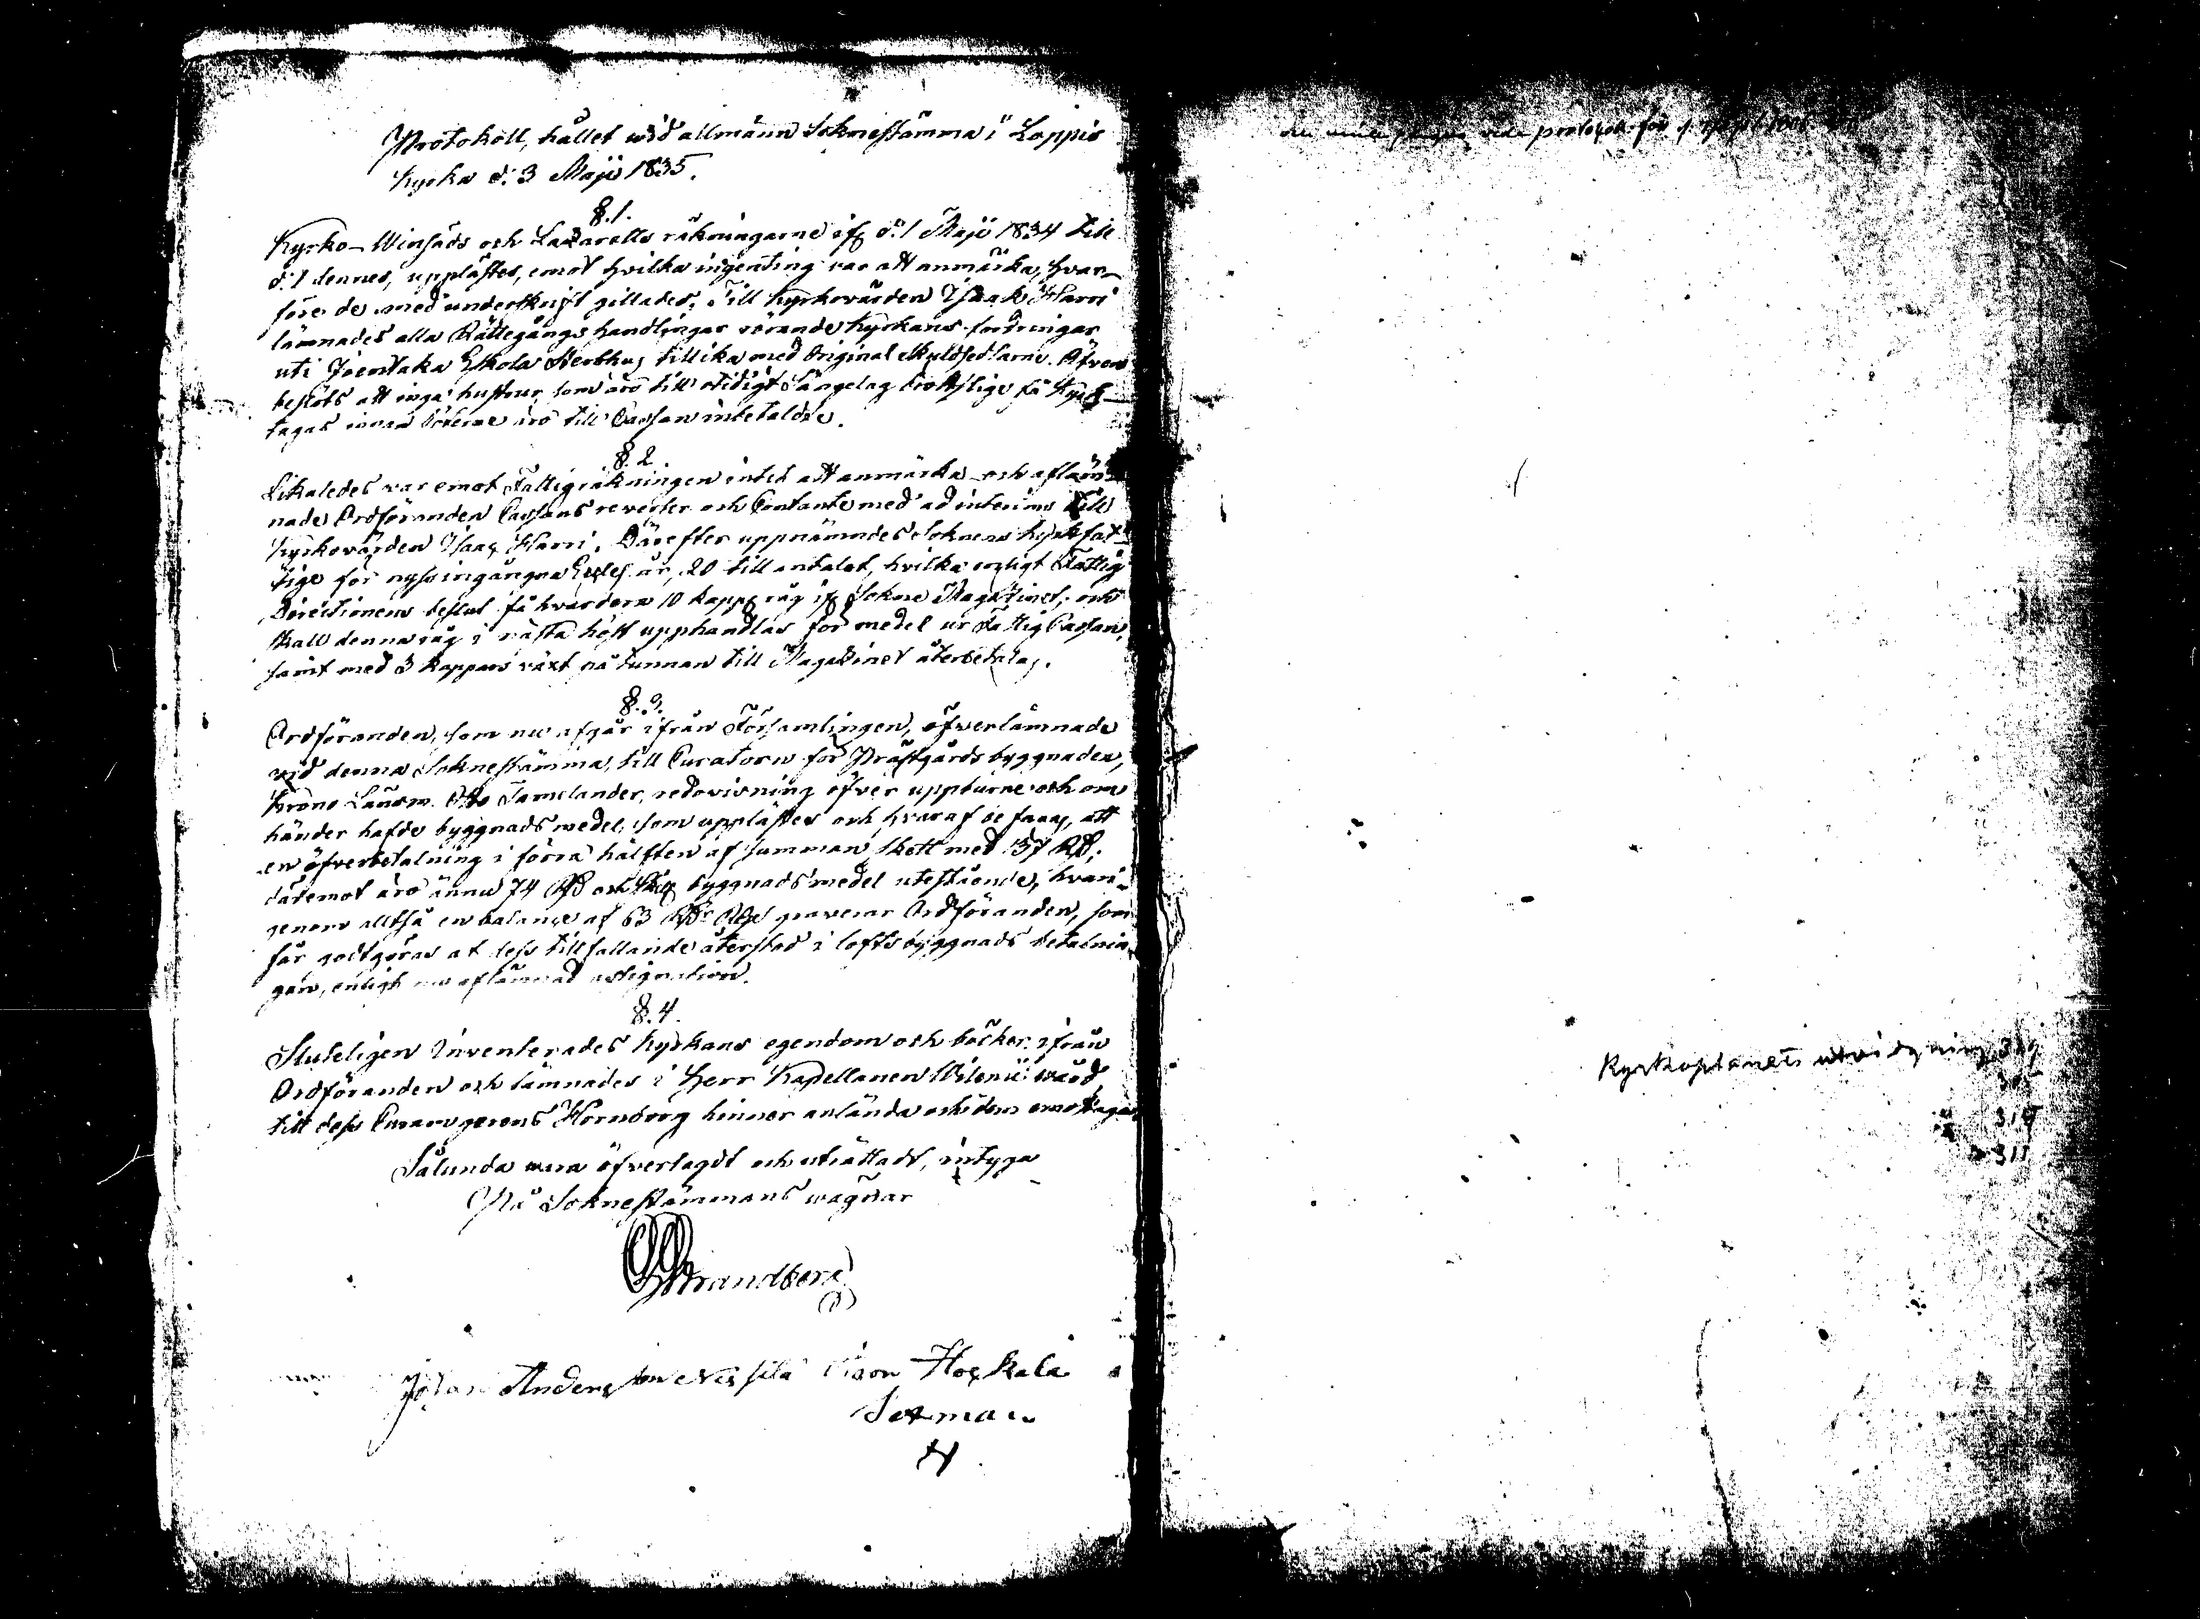 Protokoll, hållet wid allmänn Soknestämma i Loppis
Kyrka d: 3 Maji 1835.
§.1.
Kyrko- Winsäds och Lazaretts räkningarne ifr d: 1 Maji 1834 till
d: 1 dennes, upplästes, emot hvilka ingenting var att anmärka, hvar-
före de med underskrift gillades. Till Kyrkovärden Isaak Harri
lämnades alla Rättegångs handlingar rörande Kyrkans fordringar
uti Joentaka Eskola Sterbhus tillika med Original Skuldsedlarne. Äfven
beslöts att inga hustrur som äro till otidigt Sängelag brottslige få Kyrk-
tagas innan böterne äro till Cassan inbetalde.
§.2.
Likaledes var emot Fattigräkningen intet att anmärka och afläm-
nade Ordföranden Cassans reverser och Contante med ad interims till
Kyrkovärden Isaac Harri. Därefter uppnämndes Soknens Kyrkfat-
tige för nyssingångna Eccles. år, 20 till antalet, hvilka enligt Fattig
Directionens beslut få hvardera 10 kappr råg ifr Sokne Magazinet; och
skall denna råg i nästa höst upphandlas för medel ur Fattig Cassan,
samt med 3 kappars växt på tunnan till Magazinet återbetalas.
§.3.
Ordföranden, som nu afgår ifrån Församlingen, öfverlämnade
vid denna Soknestämma, till Curatorn för Prästgårds byggnaden,
Krono Länsm. Otto Tamelander, redovisning öfver uppburne och om
händer hafde byggnads medel, som upplästes och hvaraf befanns, att
en öfverbetalning i förra hälften af summan skett med 137 Rd;
däremot äro ännu 74 Rd och byggnads medel utestående, hvari-
genom alltså en balance af 63 Rd graverar Ordföranden, som
får godtgöras at dess tillfallande återstod i lofts byggnads betalnin-
gen, enligt nu aflämnad assignation.
§.4.
Sluteligen Inventerades Kyrkans egendom och böcker ifrån
Ordföranden och lämnades i Herr Kapellanen Wilenii wård
till dess Curam gerens Hornborg hinner anlända och dem emottaga
Sålunda vara öfverlagdt och uträttadt, intyga
På Sokne stämmans wägnar
Strandberg
Johan Andersson Simon Hoskala
Sexman